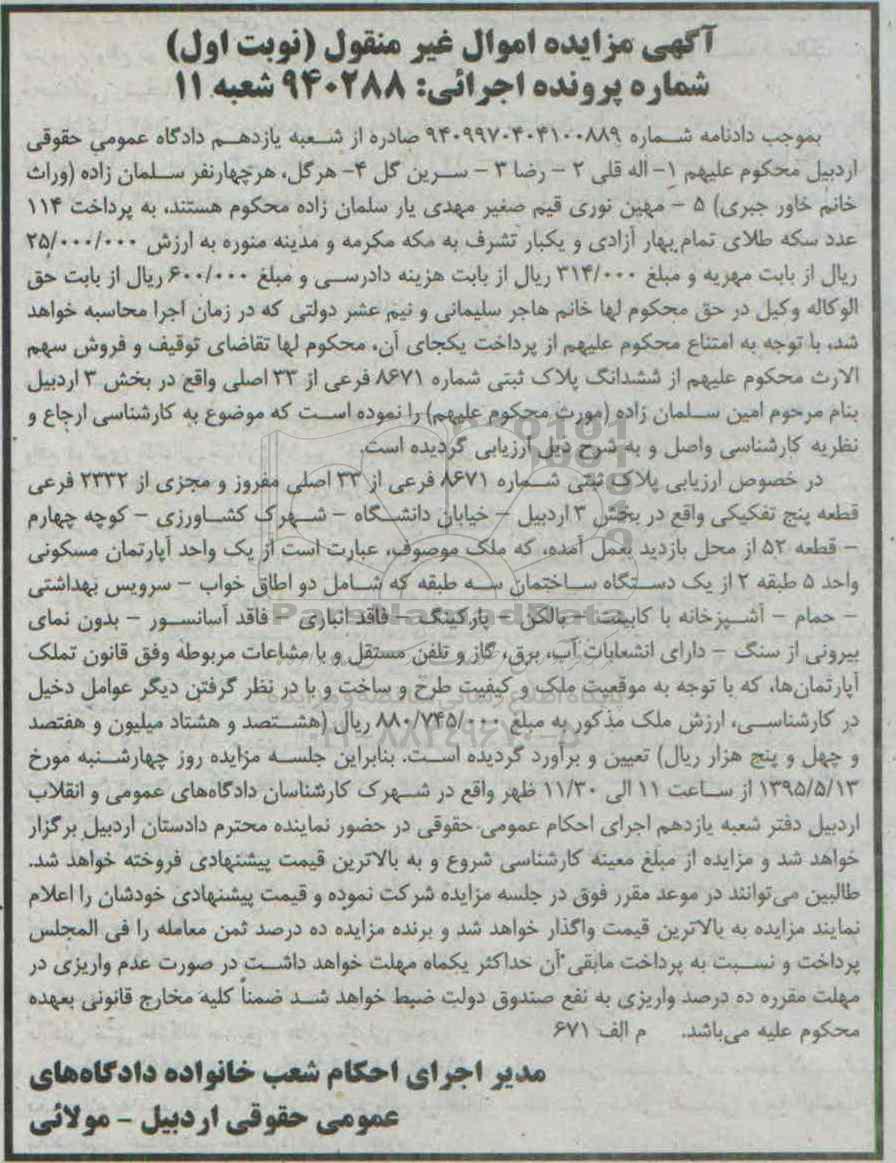 آگهی مزایده اموال غیر منقول (نوبت اول)
شماره پرونده اجرائی: ۹۴۰۲۸۸ شعبه ۱۱
بموجب دادنامه شماره ۹۴۰۹۹۷۰۴۰۴۱۰۰۸۸۹ صادره از شعبه یازدهم دادگاه عمومی حقوقی
اردبیل محکوم علیهم ۱- اله قلی ۲ - رضا ۳ - سرین گل ۴- هرگل، هرچهارنفر سلمان زاده (وراث
خانم خاور جبری) ۵ - مهین نوری قیم صغیر مهدی یار سلمان زاده محکوم هستند، به پرداخت ۱۱۴
عدد سکه طلای تمام بهار آزادی و یکبار تشرف به مکه مکرمه و مدینه منوره به ارزش ۲۵/۰۰۰/۰۰۰
ریال از بابت مهریه و مبلغ ۳۱۴/۰۰۰ ریال از بابت هزینه دادرسی و مبلغ ۶۰۰/۰۰۰ ریال از بابت حق
الوکاله وکیل در حق محکوم لها خانم هاجر سلیمانی و نیم عشر دولتی که در زمان اجرا محاسبه خواهد
شد، با توجه به امتناع محکوم علیهم از پرداخت یکجای آن، محکوم لها تقاضای توقیف و فروش سهم
الارث محکوم علیهم از ششدانگ پلاک ثبتی شماره ۸۶۷۱ فرعی از ۳۳ اصلی واقع در بخش ۳ اردبیل
بنام مرحوم امین سلمان زاده (مورث محکوم علیهم) را نموده است که موضوع به کارشناسی ارجاع و
نظریه کارشناسی واصل و به شرح ذیل ارزیابی گردیده است.
در خصوص ارزیابی پلاک ثبتی شماره ۸۶۷۱ فرعی از ۳۳ اصلی مفروز و مجزی از ۲۳۳۲ فرعی
قطعه پنج تفکیکی واقع در بخش ۳ اردبیل - خیابان دانشگاه - شهرک کشاورزی - کوچه چهارم
- قطعه ۵۲ از محل بازدید بعمل آمده، که ملک موصوف، عبارت است از یک واحد آپارتمان مسکونی
واحد ۵ طبقه ۲ از یک دستگاه ساختمان سه طبقه که شامل دو اطاق خواب - سرویس بهداشتی
- حمام - آشپزخانه با کابینت - بالکن - پارکینگ - فاقد انباری - فاقد آسانسور - بدون نمای
بیرونی از سنگ - دارای انشعابات آب، برق، گاز و تلفن مستقل و با مشاعات مربوطه وفق قانون تملک
آپارتمان‌ها، که با توجه به موقعیت ملک و کیفیت طرح و ساخت و با در نظر گرفتن دیگر عوامل دخیل
در کارشناسی، ارزش ملک مذکور به مبلغ ۸۸۰/۷۴۵/۰۰۰ ریال (هشتصد و هشتاد میلیون و هفتصد
و چهل و پنج هزار ریال) تعیین و برآورد گردیده است. بنابراین جلسه مزایده روز چهارشنبه مورخ
۱۳۹۵/۵/۱۳ از ساعت ۱۱ الی ۱۱/۳۰ ظهر واقع در شهرک کارشناسان دادگاه‌های عمومی و انقلاب
اردبیل دفتر شعبه یازدهم اجرای احکام عمومی حقوقی در حضور نماینده محترم دادستان اردبیل برگزار
خواهد شد و مزایده از مبلغ معینه کارشناسی شروع و به بالاترین قیمت پیشنهادی فروخته خواهد شد.
طالبین می‌توانند در موعد مقرر فوق در جلسه مزایده شرکت نموده و قیمت پیشنهادی خودشان را اعلام
نمایند مزایده به بالاترین قیمت واگذار خواهد شد و برنده مزایده ده درصد ثمن معامله را فی المجلس
پرداخت و نسبت به پرداخت مابقی آن حداکثر یکماه مهلت خواهد داشت در صورت عدم واریزی در
مهلت مقرره ده درصد واریزی به نفع صندوق دولت ضبط خواهد شد ضمناً کلیه مخارج قانونی بعهده
محکوم علیه می‌باشد. م الف ۶۷۱
مدیر اجرای احکام شعب خانواده دادگاه‌های
عمومی حقوقی اردبیل - مولائی